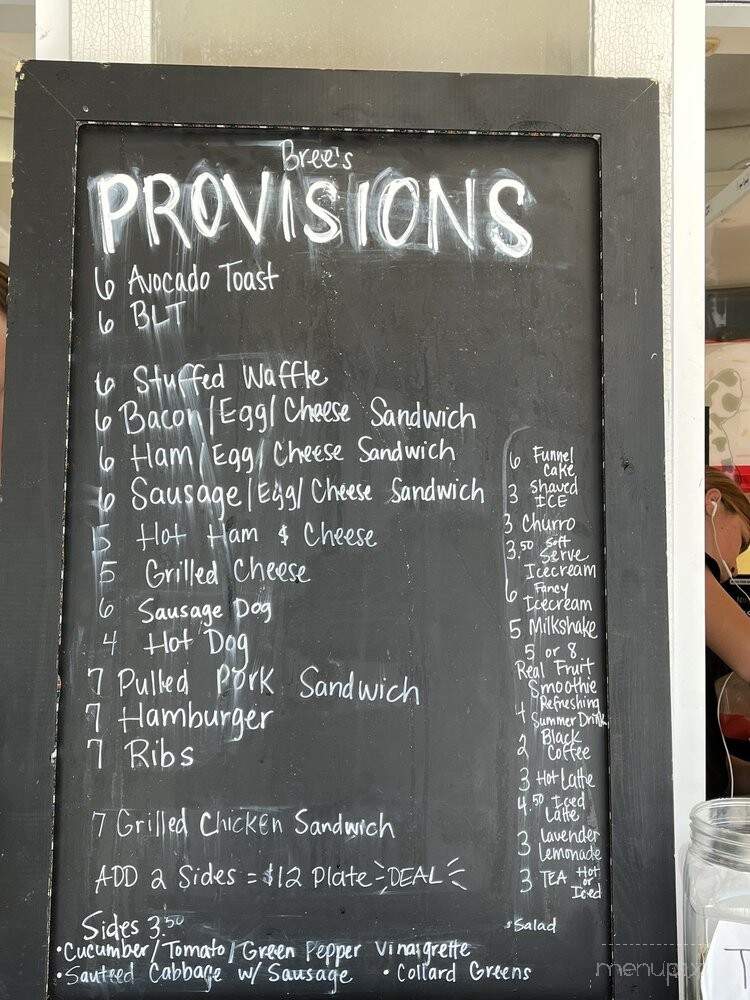 Bree's
PROVISIONS
6 Avocado Toast
6 BLT
6 Stuffed Waffle
6 Bacon/Egg/Cheese Sandwich
6 Ham/Egg/Cheese Sandwich
6 Sausage/Egg/Cheese Sandwich
5 Hot Ham & Cheese
5 Grilled Cheese
6 Sausage Dog
4 Hot Dog
7 Pulled Pork Sandwich
7 Hamburger
7 Ribs
7 Grilled Chicken Sandwich
ADD 2 Sides = $12 Plate DEAL
6 Funnel
cake
3 Shaved
ICE
3 Churro
3.50 Soft
Serve
Icecream
6 Fancy
Icecream
5 Milkshake
5 or 8
Real Fruit
Smoothie
4 Refreshing
Summer Drink
2 Black
Coffee
3 Hot Latte
4.50 Iced
Latte
3 lavender
Lemonade
3 TEA Hot
or
Iced
Sides 3.50
•Salad
•Cucumber/Tomato/Green Pepper Vinaigrette
•Sauteed Cabbage w/ Sausage •Collard Greens
menupix
T